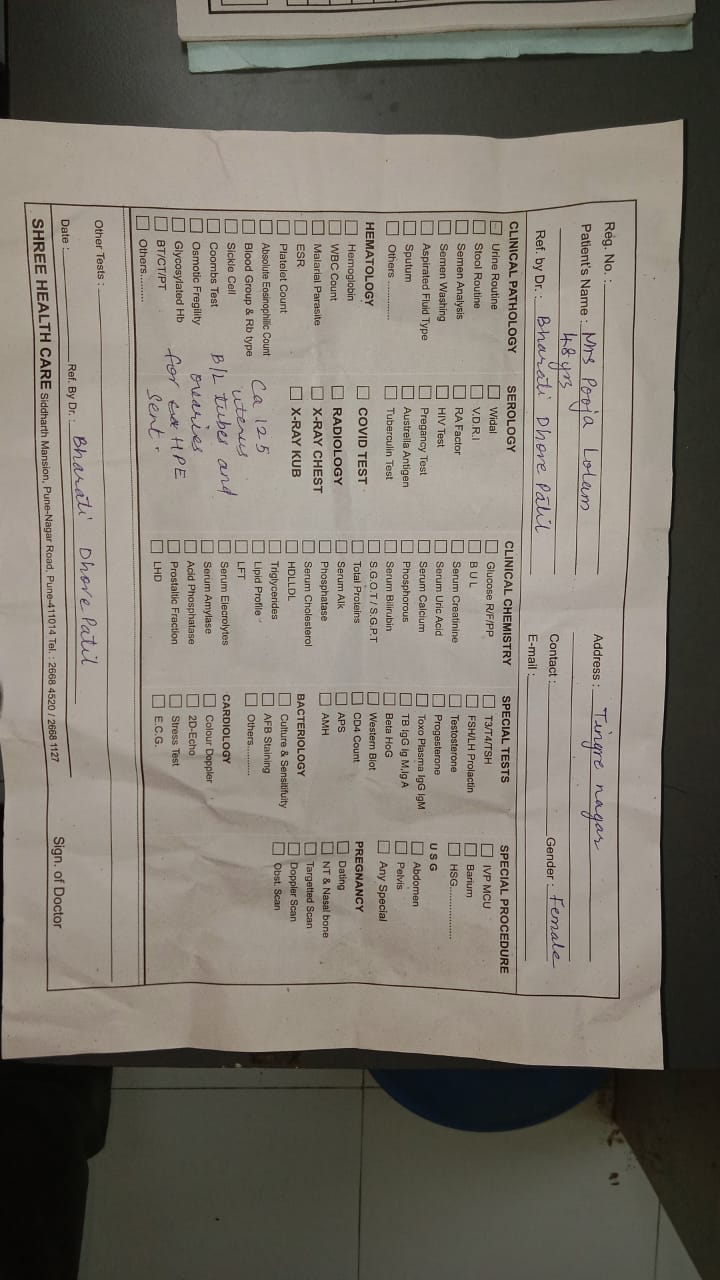 Reg. No. :
Patient's Name : Mrs Pooja Lolam
48 yrs
Ref. by Dr. : Bharati Dhore Patil
Address : Tingre nagar
Gender : Female
Contact :
E-mail :
CLINICAL PATHOLOGY
Urine Routine
Stool Routine
Semen Analysis
Semen Washing
Aspirated Fluid Type
Sputum
Others ............
HEMATOLOGY
Hemoglobin
WBC Count
Malarial Parasite
ESR
Platelet Count
Absolute Eosinophilic Count
Blood Group & Rb type
Sickle Cell
Coombs Test
Osmotic Fregility
Glycosylated Hb
BT/CT/PT
Others.........
SEROLOGY
Widal
V.D.R.I
RA Factor
HIV Test
Pregancy Test
Australia Antigen
Tuberculin Test
COVID TEST
RADIOLOGY
X-RAY CHEST
X-RAY KUB
Ca 125
uterus
B/L tubes and
ovaries
for HPE
sent.
CLINICAL CHEMISTRY
Glucose R/F/PP
B U L
Serum Creatinine
Serum Uric Acid
Serum Calcium
Phosphorous
Serum Bilirubin
S.G.O.T / S.G.P.T
Total Proteins
Serum Alk
Phosphatase
Serum Cholesterol
HDLLDL
Triglycerides
Lipid Profile
LFT
Serum Elecrolytes
Serum Amylase
Acid Phosphatase
Prostaltic Fraction
LHD
SPECIAL TESTS
T3/T4/TSH
FSH/LH Prolactin
Testosterone
Progesterone
Toxo Plasma IgG IgM
TB IgG Ig M.Ig A
Beta HoG
Western Blot
CD4 Count
APS
AMH
BACTERIOLOGY
Culture & Sensitifuity
AFB Staining
Others...........
CARDIOLOGY
Colour Doppler
2D-Echo
Stress Test
E.C.G.
SPECIAL PROCEDURE
IVP MCU
Barium
HSG..................
U S G
Abdomen
Pelvis
Any Special
PREGNANCY
Dating
NT & Nasal bone
Targetted Scan
Doppler Scan
Obst. Scan
Other Tests :
Date : Ref. By Dr. : Bharati Dhore Patil
Sign. of Doctor
SHREE HEALTH CARE Siddharth Mansion, Pune-Nagar Road, Pune-411014 Tel. : 2668 4520 / 2668 1127